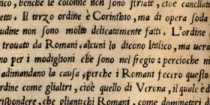 tico, benche le colonne non sono striate, cioè cancellat
etto. Il terzo ordine è Corinthio, ma di opera soda
tudine non sono molto delicattamente fatti. L'ordine
trouato da Romani, alcuni lo dicono latino, ma uera
no per i modiglioni che sono nel fregio: percioche ni
adimandano la causa, perche i Romani fecero questo
ordine come glialtri, cioè quello di Verona, il quale è d
rispondere, che gliantichi Romani, come dominatori